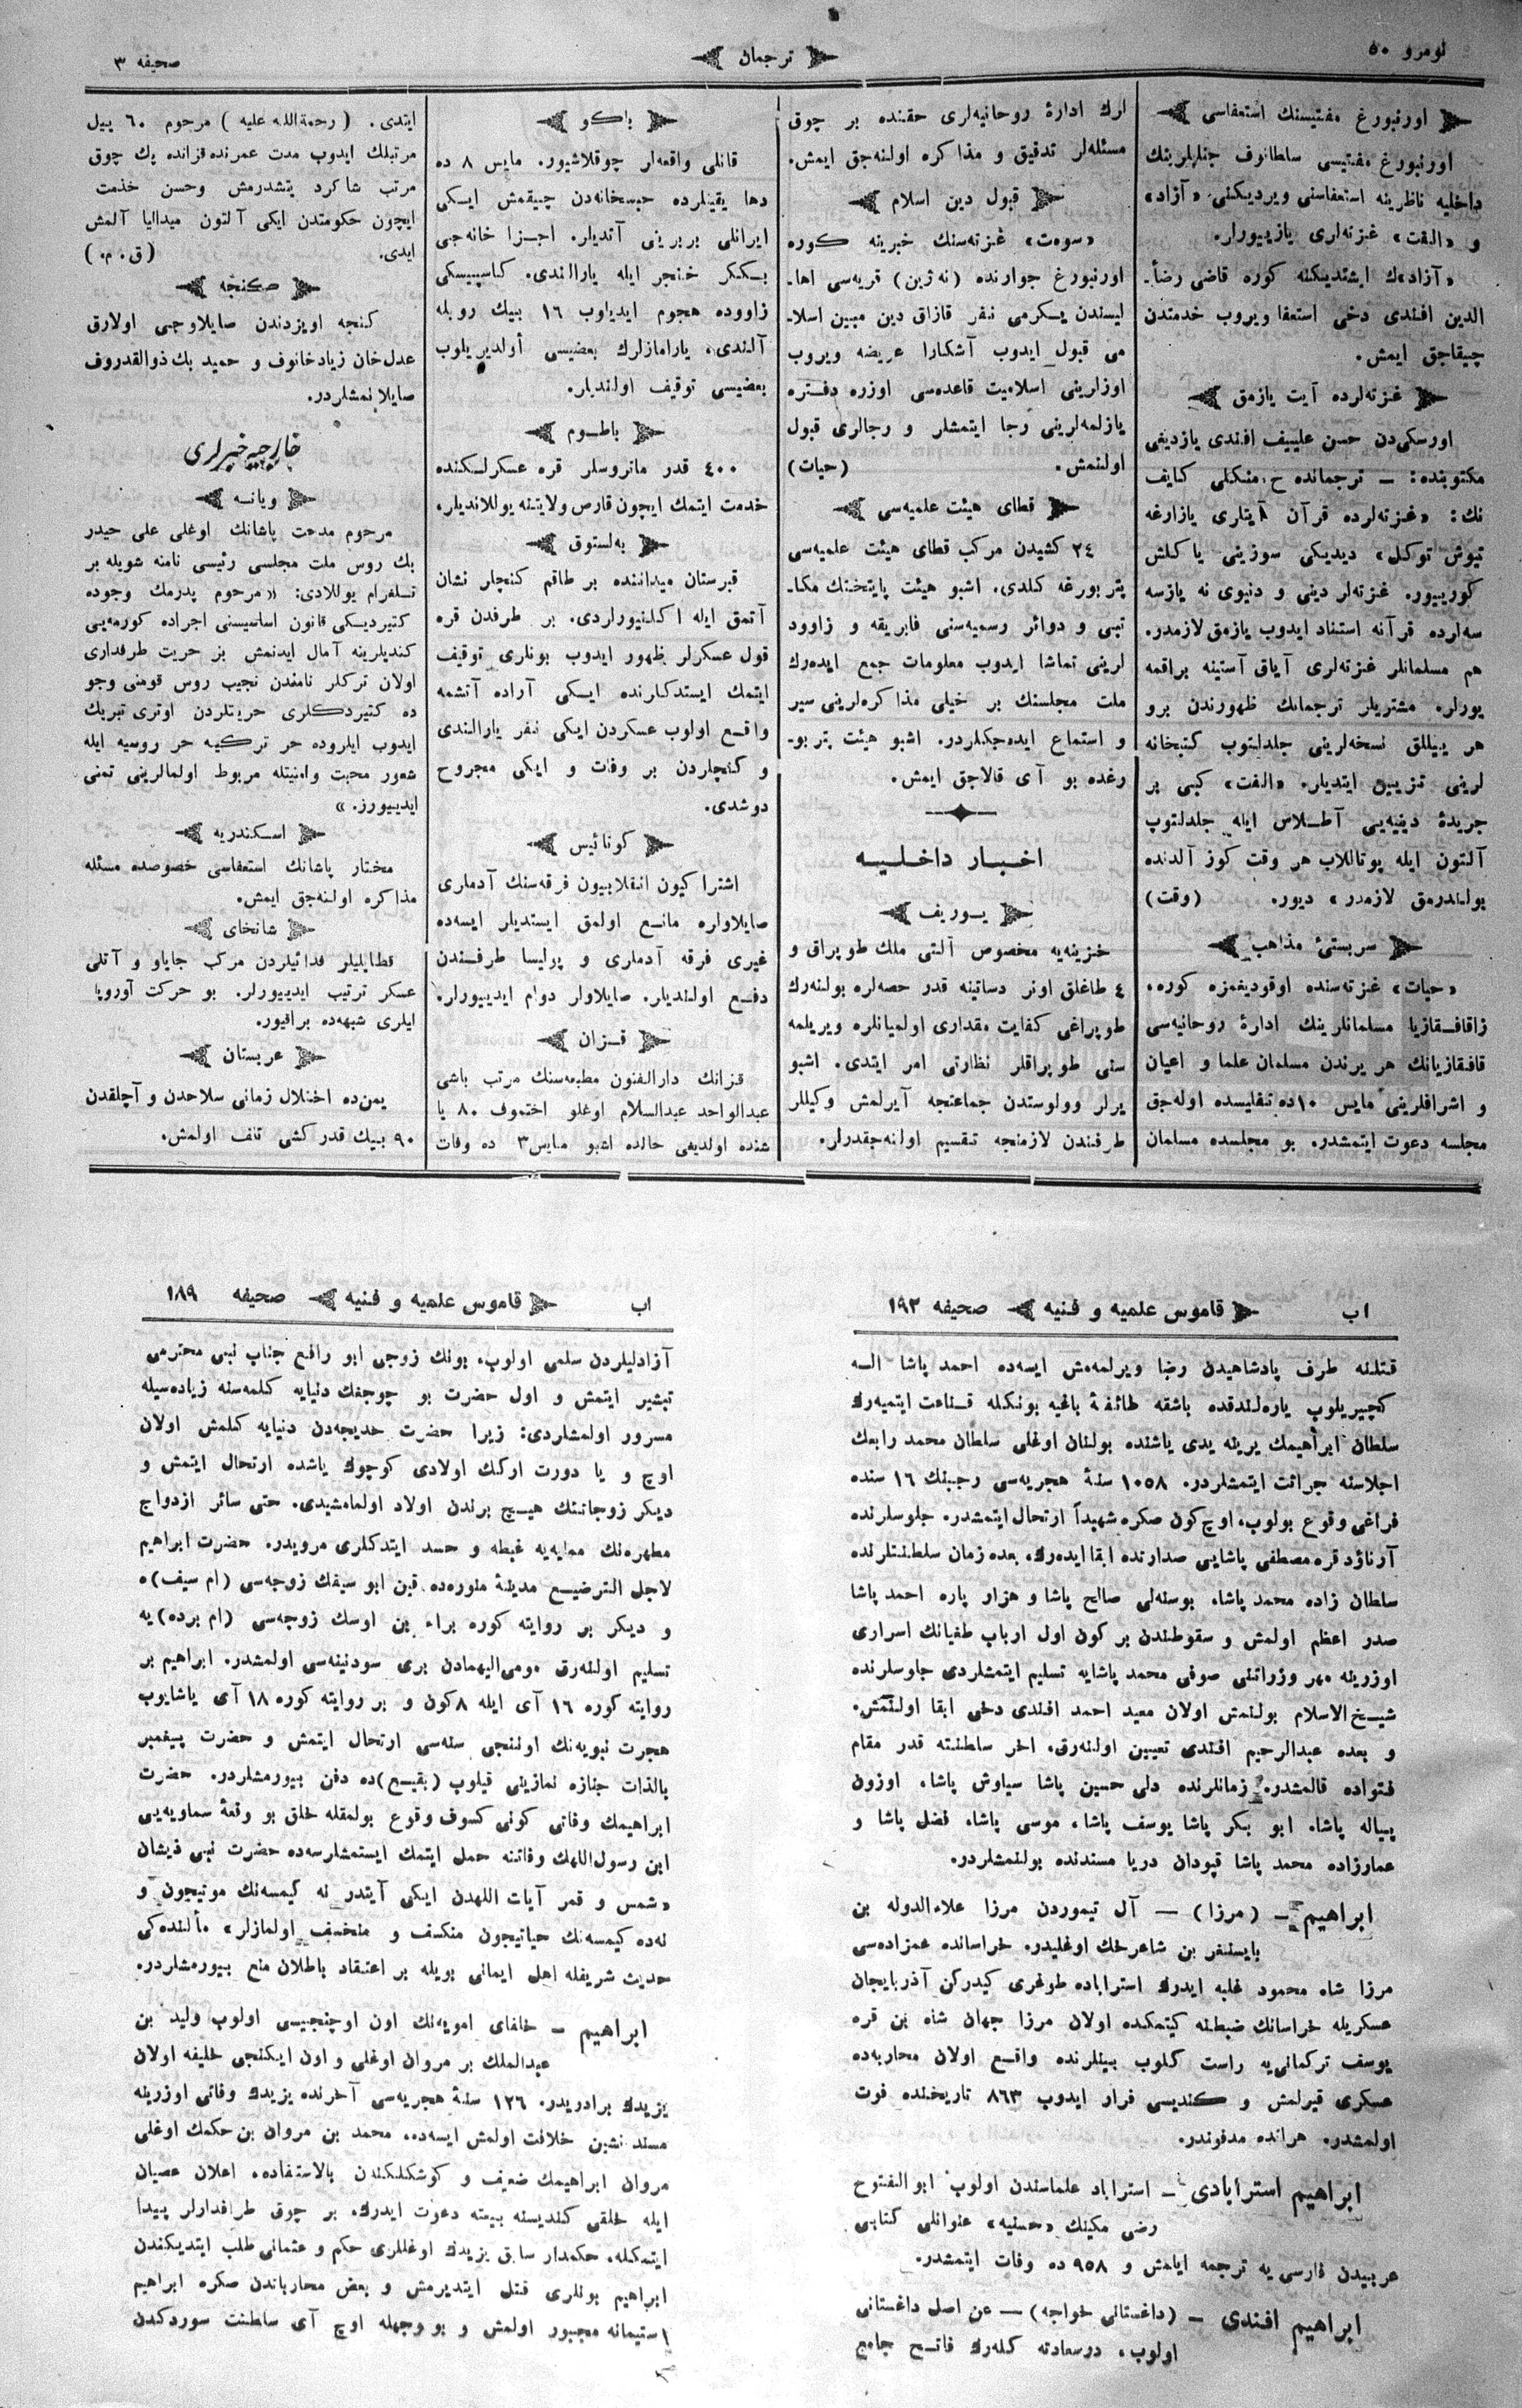 نومرو ٥٠
ترجمان
صحيفه ٣
اورنبورغ مفتيسنك استعفاسى
اورنبورغ مفتيسى سلطانوف جنابلرينك
داخليه ناظرينه استعفاسنى ويرديكنى «آزاد»
و «الفت» غزته‌لرى يازييورلر.
«آزاد»ك ايشتديكنه كوره قاضى رضأ-
الدين افندى دخى استعفا ويروب خدمتدن
چيقاجق ايمش.
غزته‌لرده آيت يازمق
اورسكى‌دن حسن علييف افندى يازديغى
مكتوبنده: — ترجمانده ح. منكلى كتايف
نك: «غزته‌لرده قرآن آيتلرى يازارغه
تيوش توكل» ديديكى سوزينى ياكلش
كورييور. غزته‌لر دينى و دنيوى نه يازسه
سه‌لرده قرآنه استناد ايدوب يازمق لازمدر.
هم مسلمانلر غزته‌لرى آياق آستينه براقمه
يورلر. مشتريلر ترجمانك ظهورندن برو
هر ييللق نسخه‌لرينى جلدلتوب كتبخانه
لرينى تزيين ايتديلر. «الفت» كبى بر
جريدهٔ دينيه‌يى آطلاس ايله جلدلتوب
آلتون ايله يوتاللاب هر وقت كوز آلدنده
بولندرمق لازمدر» ديور. (وقت)
سربستئ مذاهب
«حيات» غزته‌سنده اوقوديغمزه كوره،
زاقافقازيا مسلمانلرينك ادارهٔ روحانيه‌سى
قافقازيانك هر يرندن مسلمان علما و اعيان
و اشرافلرينى مايس ١٠ده تفليسده اوله‌جق
مجلسه دعوت ايتمشدر. بو مجلسده مسلمان
لرك ادارهٔ روحانيه‌لرى حقنده بر چوق
مسئله‌لر تدقيق و مذاكره اولنه‌جق ايمش.
قبول دين اسلام
«سوه‌ت» غزته‌سنك خبرينه كوره
اورنبورغ جوارنده (نه‌ژين) قريه‌سى اها-
ليسندن يكرمى نفر قازاق دين مبين اسلا-
مى قبول ايدوب آشكارا عريضه ويروب
اوزلرينى اسلاميت قاعده‌سى اوزره دفتره
يازلمه‌لرينى رجا ايتمشلر و رجالرى قبول
اولنمش. (حيات)
قطاى هيئت علميه‌سى
٢٤ كشيدن مركب قطاى هيئت علميه‌سى
پتربورغه كلدى. اشبو هيئت پايتختك مكا-
تبى و دوائر رسميه‌سنى فابريقه و زاوود
لرينى تماشا ايدوب معلومات جمع ايده‌رك
ملت مجلسنك بر خيلى مذاكره‌لرينى سير
و استماع ايده‌جكلردر. اشبو هيئت پتربو-
رغده بو آى قالاجق ايمش.
اخبار داخليه
يوريف
خزينه‌يه مخصوص آلتى ملك طوپراق و
٤ طاغلق اونر دساتينه قدر حصه‌لره بولنه‌رك
طوپراغى كفايت مقدارى اولميانلره ويريلمه
سنى طوپراقلر نظارتى امر ايتدى. اشبو
يرلر وولوستدن جماعتجه آيرلمش وكيللر
طرفندن لازمنجه تقسيم اولنه‌جقدرلر.
باكو
قانلى واقعه‌لر چوقلاشيور. مايس ٨ ده
دها يقينلرده حبسخانه‌دن چيقمش ايكى
ايرانلى بربرينى آتديلر. اجزا خانه‌جى
بككر خنجر ايله يارالندى. كاسپيسكى
زاووده هجوم ايدياوب ١٦ بيك روبله
آلندى، يارامازلرك بعضيسى أولديريلوب
بعضيسى توقيف اولنديلر.
باطوم
٤٠٠ قدر ماتروسلر قره عسكرلكنده
خدمت ايتمك ايچون قارص ولايتنه يوللانديلر.
به‌لستوق
قبرستان ميداننده بر طاقم كنجلر نشان
آتمق ايله اكلنيورلردى. بر طرفدن قره
قول عسكرلر ظهور ايدوب بونلرى توقيف
ايتمك ايستدكلرنده ايكى آراده آتشمه
واقع اولوب عسكردن ايكى نفر يارالندى
و كنجلردن بر وفات و ايكى مجروح
دوشدى.
كوتائيس
اشتراكيون انقلابيون فرقه‌سنك آدملرى
صايلاولره مانع اولمق ايستديلر ايسه‌ده
غيرى فرقه آدملرى و پوليسا طرفندن
دفع اولنديلر. صايلاولر دوام ايدييورلر.
قزان
قزانك دارالفنون مطبعه‌سنك مرتب باشى
عبدالواحد عبدالسلام اوغلو اختموف ٨٠ يا
شنده اولديغى حالده اشبو مايس ٣ ده وفات
ايتدى. (رحمةالله عليه) مرحوم ٦٠ ييل
مرتبلك ايدوب مدت عمرنده قزانده پك چوق
مرتب شاكرد يتشدرمش وحسن خذمت
ايچون حكومتدن ايكى آلتون ميداليا آلمش
ايدى. (ق. م.)
كنجه
كنجه اويزدندن صايلاوجى اولارق
عدل‌خان زيادخانوف و حميد بك ذوالقدروف
صايلانمشلردر.
خارجيه خبرلرى
ويانه
مرحوم مدحت پاشانك اوغلى على حيدر
بك روس ملت مجلسى رئيسى نامنه شويله بر
تلغرام يوللادى: «مرحوم پدرمك وجوده
كتيرديكى قانون اساسيسنى اجراده كورمه‌يى
كنديلرينه آمال ايدنمش بز حريت طرفدارى
اولان تركلر نامندن نجيب روس قومنى وجو
ده كتيردكلرى حريتلردن اوترى تبريك
ايدوب ايلروده حر تركيه حر روسيه ايله
شعور محبت وامنيتله مربوط اولمالرينى تمنى
ايدييورز.»
اسكندريه
مختار پاشانك استعفاسى خصوصده مسئله
مذاكره اولنه‌جق ايمش.
شانخاى
قطايليلر فدائيلردن مركب جاياو و آتلى
عسكر ترتيب ايدييورلر. بو حركت آوروپا
ايلرى شبهه‌ده براقيور.
عربستان
يمن‌ده اختلال زمانى سلاحدن و آچلقدن
٩٠ بيك قدر كشى تلف اولمش.
اب قاموس علميه و فنيه صحيفه ١٩٢
قتلنه طرف پادشاهيدن رضا ويرلمه‌مش ايسه‌ده احمد پاشا اله
كچيريلوب پاره‌لندقده باشقه طائفهٔ باغيه بونكله قناعت ايتميه‌رك
سلطان ابراهيمك يرينه يدى ياشنده بولنان اوغلى سلطان محمد رابعك
اجلاسنه جرائت ايتمشلردر. ١٠٥٨ سنهٔ هجريه‌سى رجبنك ١٦ سنده
فراغى وقوع بولوب، اوچ كون صكره شهيداً ارتحال ايتمشدر. جلوسلرنده
آرناؤد قره مصطفى پاشايى صدارتده ابقا ايده‌رك، بعده زمان سلطنتلرنده
سلطان زاده محمد پاشا، بوسنه‌لى صالح پاشا و هزار پاره احمد پاشا
صدر اعظم اولمش و سقوطندن بر كون اول ارباب طغيانك اسرارى
اوزرينه مهر وزراتنى صوفى محمد پاشايه تسليم ايتمشلردى جلوسلرنده
شيخ‌الاسلام بولنمش اولان معيد احمد افندى دخى ابقا اولنمش.
و بعده عبدالرحيم افندى تعيين اولنه‌رق، اخر سلطنته قدر مقام
فتواده قالمشدر. زمانلرنده دلى حسين پاشا سياوش پاشا، اوزون
پياله پاشا، ابو بكر پاشا يوسف پاشا، موسى پاشا، فضل پاشا و
عمارزاده محمد پاشا قپودان دريا مسندنده بولنمشلردر.
ابراهيم — (مرزا) — آل تيموردن مرزا علاءالدوله بن
بايسنغر بن شاهرخك اوغليدر. خراسانده عمزاده‌سى
مرزا شاه محمود غلبه ايدرك استراباده طوغرى كيدركن آذربايجان
عسكريله خراسانك ضبطنه كيتمكده اولان مرزا جهان شاه بن قره
يوسف تركمانى‌يه راست كلوب بينلرنده واقع اولان محاربه‌ده
عسكرى قيرلمش و كنديسى فرار ايدوب ٨٦٣ تاريخنده فوت
اولمشدر. هراتده مدفوندر.
ابراهيم استرابادى — استراباد علماسندن اولوب ابوالفتوح
رضى مكينك «حسنيه» عنوانلى كتابى
عربيدن فارسى يه ترجمه ايلمش و ٩٥٨ ده وفات ايتمشدر.
ابراهيم افندى — (داغستانى خواجه) — عن اصل داغستانى
اولوب، درسعادته كله‌رك فاتح جامع
اب قاموس علميه و فنيه صحيفه ١٨٩
آزادليلردن سلمى اولوب، بونك زوجى ابو رافع جناب نبى محترمى
تبشير ايتمش و اول حضرت بو چوجغك دنيايه كلمه‌سنه زياده‌سيله
مسرور اولمشلردى: زيرا حضرت خديجه‌دن دنيايه كلمش اولان
اوچ و يا دورت اركك اولادى كوچوك ياشده ارتحال ايتمش و
ديكر زوجاتنك هيچ برندن اولاد اولمامشيدى. حتى سائر ازدواج
مطهره‌نك ماريه‌يه غبطه و حسد ايتدكلرى مرويدر. حضرت ابراهيم
لاجل الترضيع مدينهٔ منوره‌ده قين ابو سيفك زوجه‌سى (ام سيف)ه
و ديكر بر روايته كوره براء بن اوسك زوجه‌سى (ام برده)يه
تسليم اولنه‌رق مومى‌اليهمادن برى سودنينه‌سى اولمشدر. ابراهيم بر
روايته كوره ١٦ آى ايله ٨ كون و بر روايته كوره ١٨ آى ياشايوب
هجرت نبويه‌نك اوننجى سنه‌سى ارتحال ايتمش و حضرت پيغمبر
بالذات جنازه نمازينى قيلوب (بقيع)ده دفن بيورمشلردر. حضرت
ابراهيمك وفاتى كونى كسوف وقوع بولمقله خلق بو وقعهٔ سماويه‌يى
ابن رسول‌اللهك وفاتنه حمل ايتمك ايستمشلرسه‌ده حضرت نبى ذيشان
«شمس و قمر آيات اللهدن ايكى آيتدر نه كيمسه‌نك موتيچون و
نه‌ده كيمسه‌نك حياتيچون منكسف و منخسف اولمازلر» مألنده‌كى
حديث شريفله اهل ايمانى بويله بر اعتقاد باطلان منع بيورمشلردر.
ابراهيم — خلفاى امويه‌نك اون اوچنجيسى اولوب وليد بن
عبدالملك بر مروان اوغلى و اون ايكنجى خليفه اولان
يزيدك برادريدر. ١٢٦ سنهٔ هجريه‌سى آخرنده يزيدك وفاتى اوزرينه
مسند نشين خلافت اولمش ايسه‌ده، محمد بن مروان بن حكمك اوغلى
مروان ابراهيمك ضعيف و كوشكلكندن بالاستفاده، اعلان عصيان
ايله خلقى كنديسنه بيعته دعوت ايدرك، بر چوق طرافدارلر پيدا
ايتمكله، حكمدار سابق يزيدك اوغللرى حكم و عثمانى طلب ايتديكندن
ابراهيم بونلرى قتل ايتديرمش و بعض محارباتدن صكره ابراهيم
استيمانه مجبور اولمش و بو وجهله اوچ آى سلطنت سوردكدن